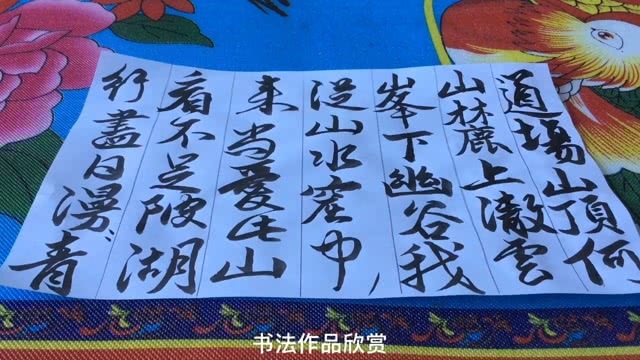 道場山頂何
山麓上澈雲
峯下幽谷我
從山水窟中
来尚愛此山
看不足陂湖
行盡白漫〻青
书法作品欣赏